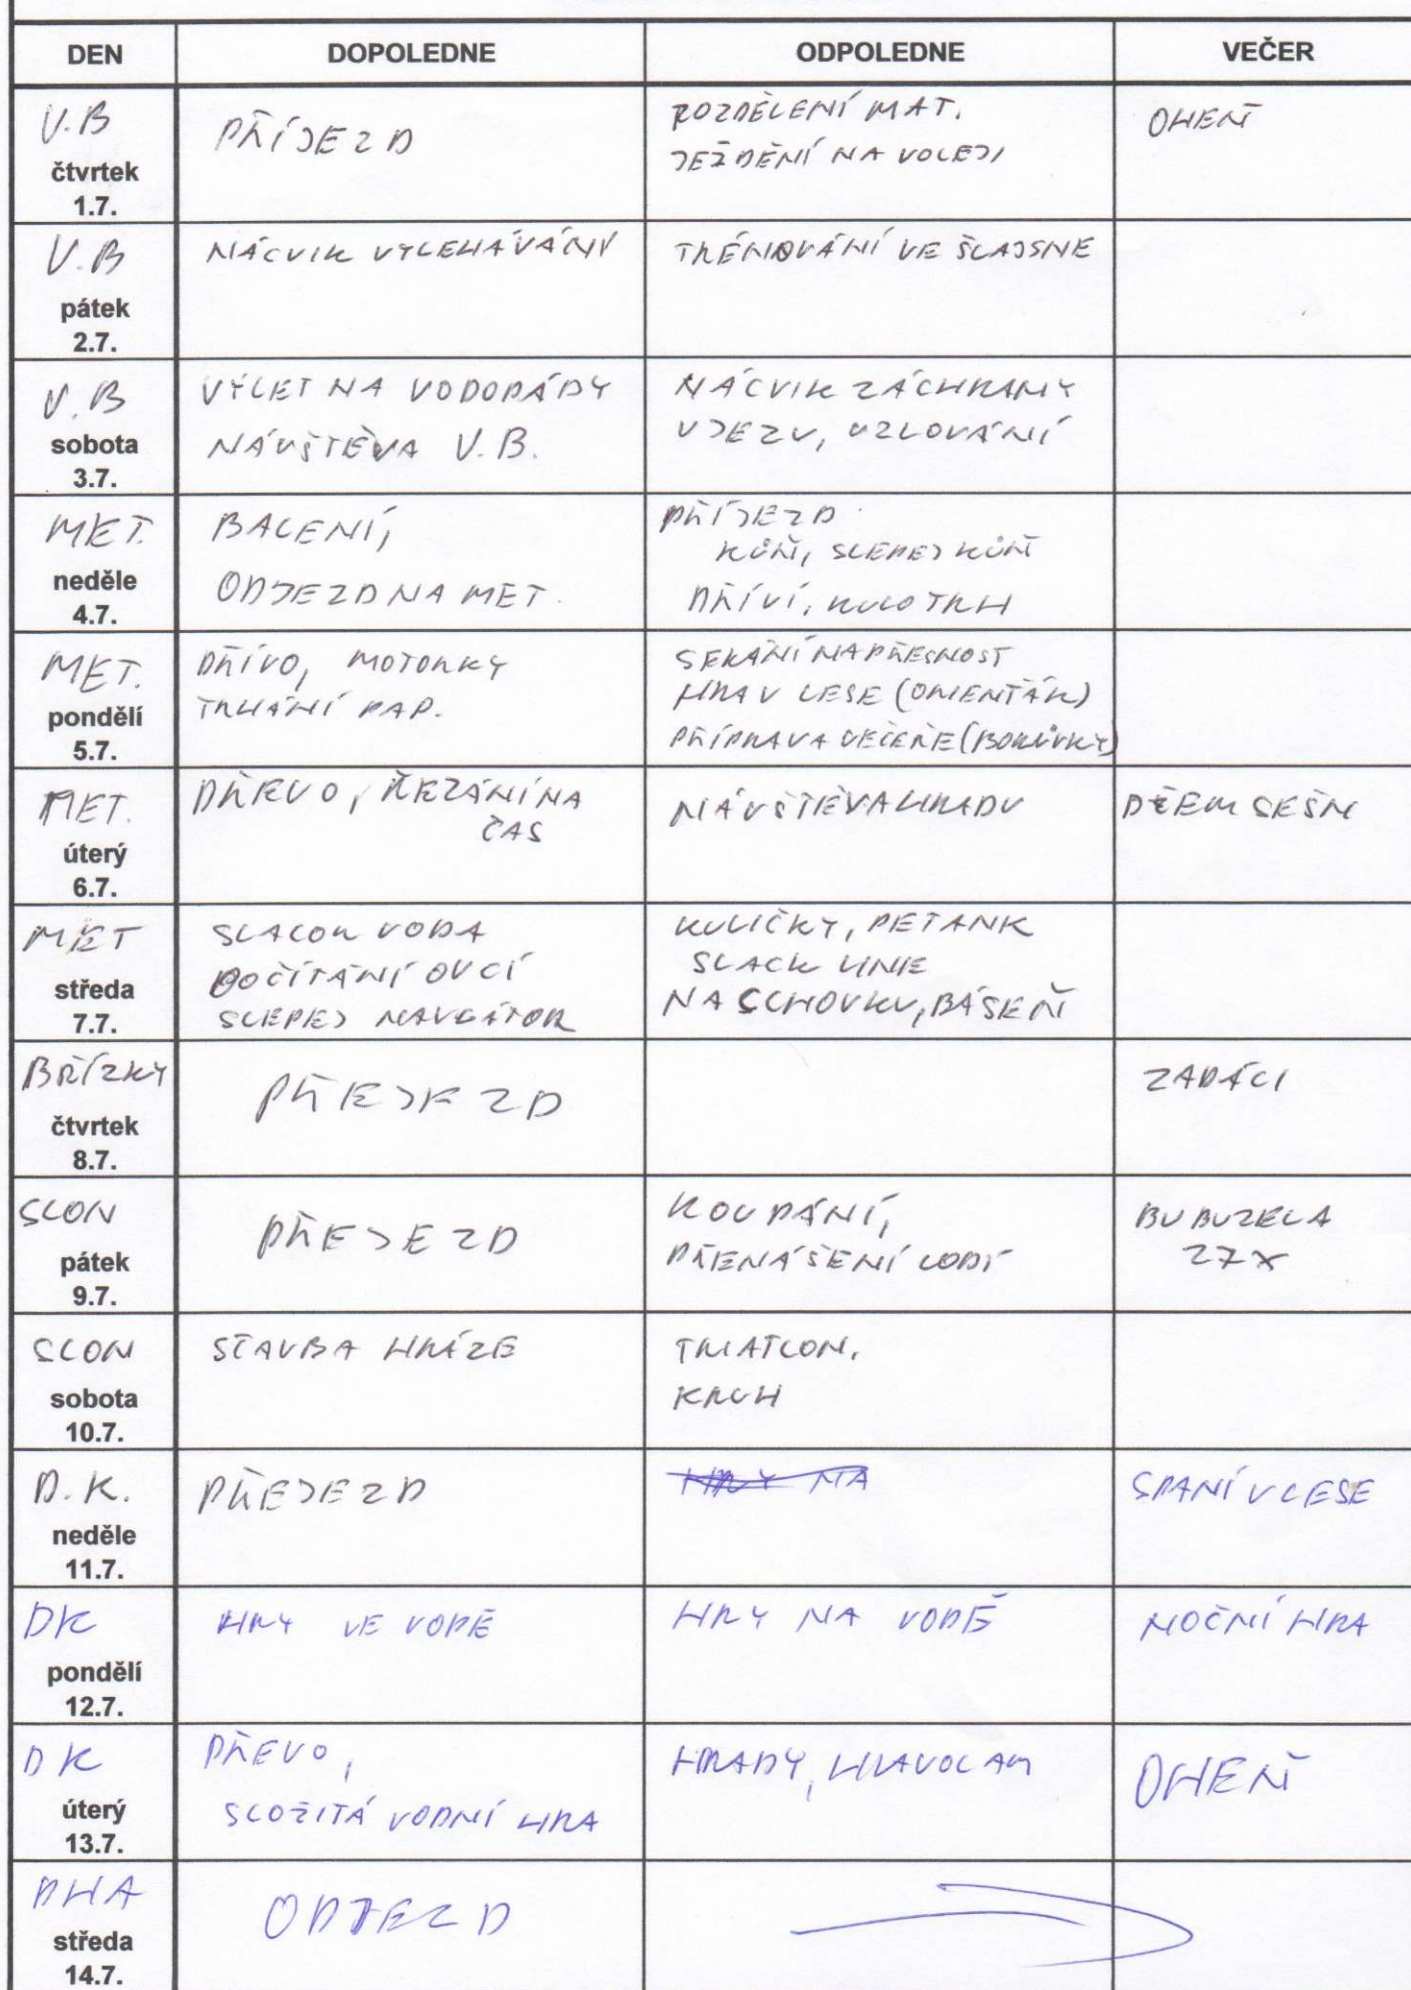 DEN DOPOLEDNE ODPOLEDNE VEČER
V.B
čtvrtek
1.7.
PŘÍJEZD
ROZDĚLENÍ MAT.
JEŽDĚNÍ NA VOLEJI
OHEŇ
V.B
pátek
2.7.
NÁCVIK VYLEHÁVÁNÍ
TRÉNOVÁNÍ VE ŠLAJSNE
V.B
sobota
3.7.
VÝLET NA VODOPÁDY
NÁVŠTĚVA V.B.
NÁCVIK ZÁCHRANY
V JEZU, UZLOVÁNÍ
MET.
neděle
4.7.
BALENÍ,
ODJEZD NA MET.
PŘÍJEZD
KŮŇ, SLEPEJ KŮŇ
DŘÍVÍ, KULOTRH
MET.
pondělí
5.7.
DŘÍVO, MOTORKY
TRHÁNÍ PAP.
SEKÁNÍ NA PŘESNOST
HRA V LESE (ORIENŤÁK)
PŘÍPRAVA VEČEŘE (BORŮVKY)
MET.
úterý
6.7.
DŘEVO, ŘEZÁNÍ NA
ČAS
NÁVŠTĚVA HRADU
DŽEM SEŠN
MET
středa
7.7.
SLALOM VODA
POČÍTÁNÍ OVCÍ
SLEPEJ NAVGÁTOR
KULIČKY, PETANK
SLACK LINIE
NA SCHOVKU, BÁSEŇ
BŘÍZKY
čtvrtek
8.7.
PŘEJEZD
ZADÁCI
SLON
pátek
9.7.
PŘEJEZD
KOUPÁNÍ,
PŘENÁŠENÍ LODÍ
BUBUZELA
27X
SLON
sobota
10.7.
STAVBA HRÁZE
TRIATLON,
KRUH
D.K.
neděle
11.7.
PŘEJEZD
HRY NA
SPANÍ V LESE
DK
pondělí
12.7.
HRY VE VODĚ
HRY NA VODĚ
NOČNÍ HRA
DK
úterý
13.7.
DŘEVO,
SLOŽITÁ VODNÍ HRA
HRADY, HLAVOLAM
OHEŇ
PHA
středa
14.7.
ODJEZD